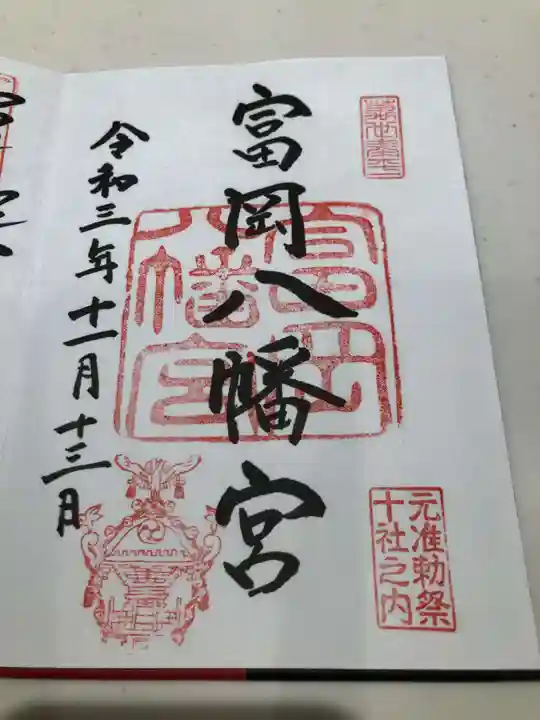 富岡八幡宮
富岡八幡宮
元准勅祭
十社之内
令和三年十一月十三日